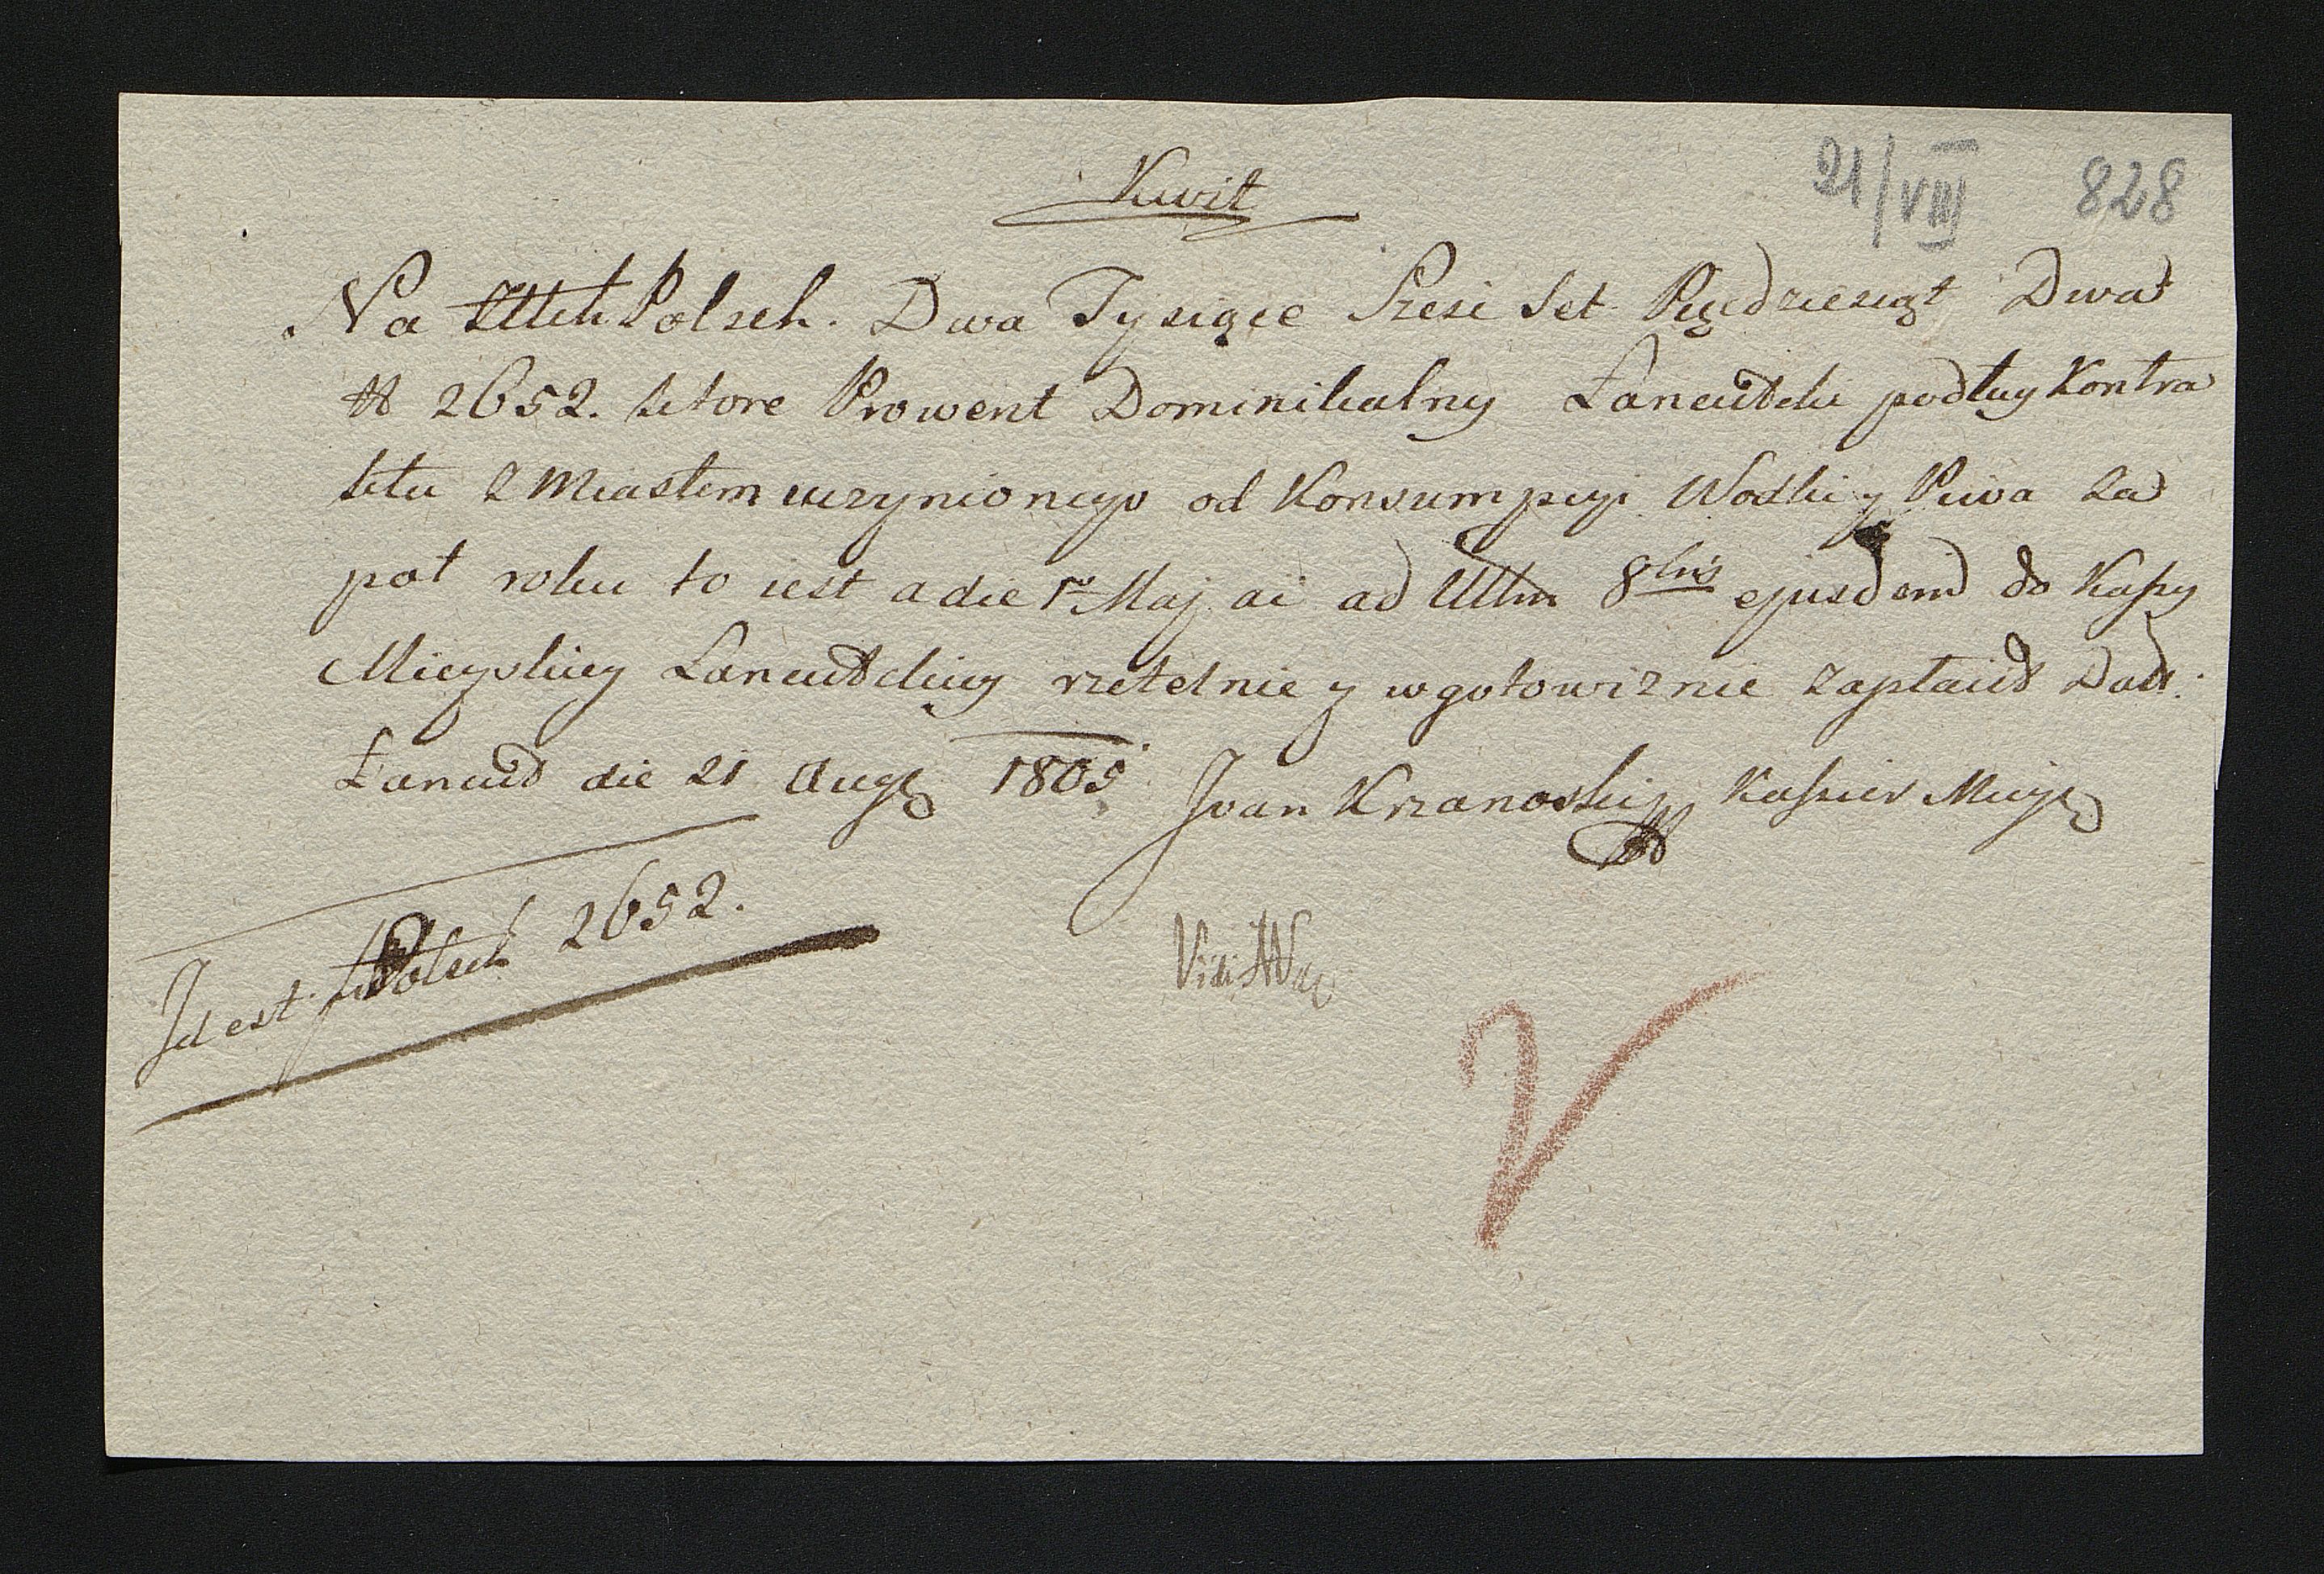 Kwit
21/VIII 828
Na Złtch Polsch. Dwa Tysiące Szesc Set Pięcdziesiąt Dwa
2652. ktore Prowent Dominikalny Łancutski podług Kontra
ktu z Miastem uczynionego od Konsumpcyi Wodki y Piwa za
poł roku to iest a die 1ma Maj ai ad Ultm 8bris ejusdem do Kassy
Mieyskiey Łancutskiey rzetelnie y w gotowiznie zapłacił Datt.
Łancut die 21 Aug 1805 Jvan Krzanoski Kassier Mieys
Id est Polsch 2652.
Vidi